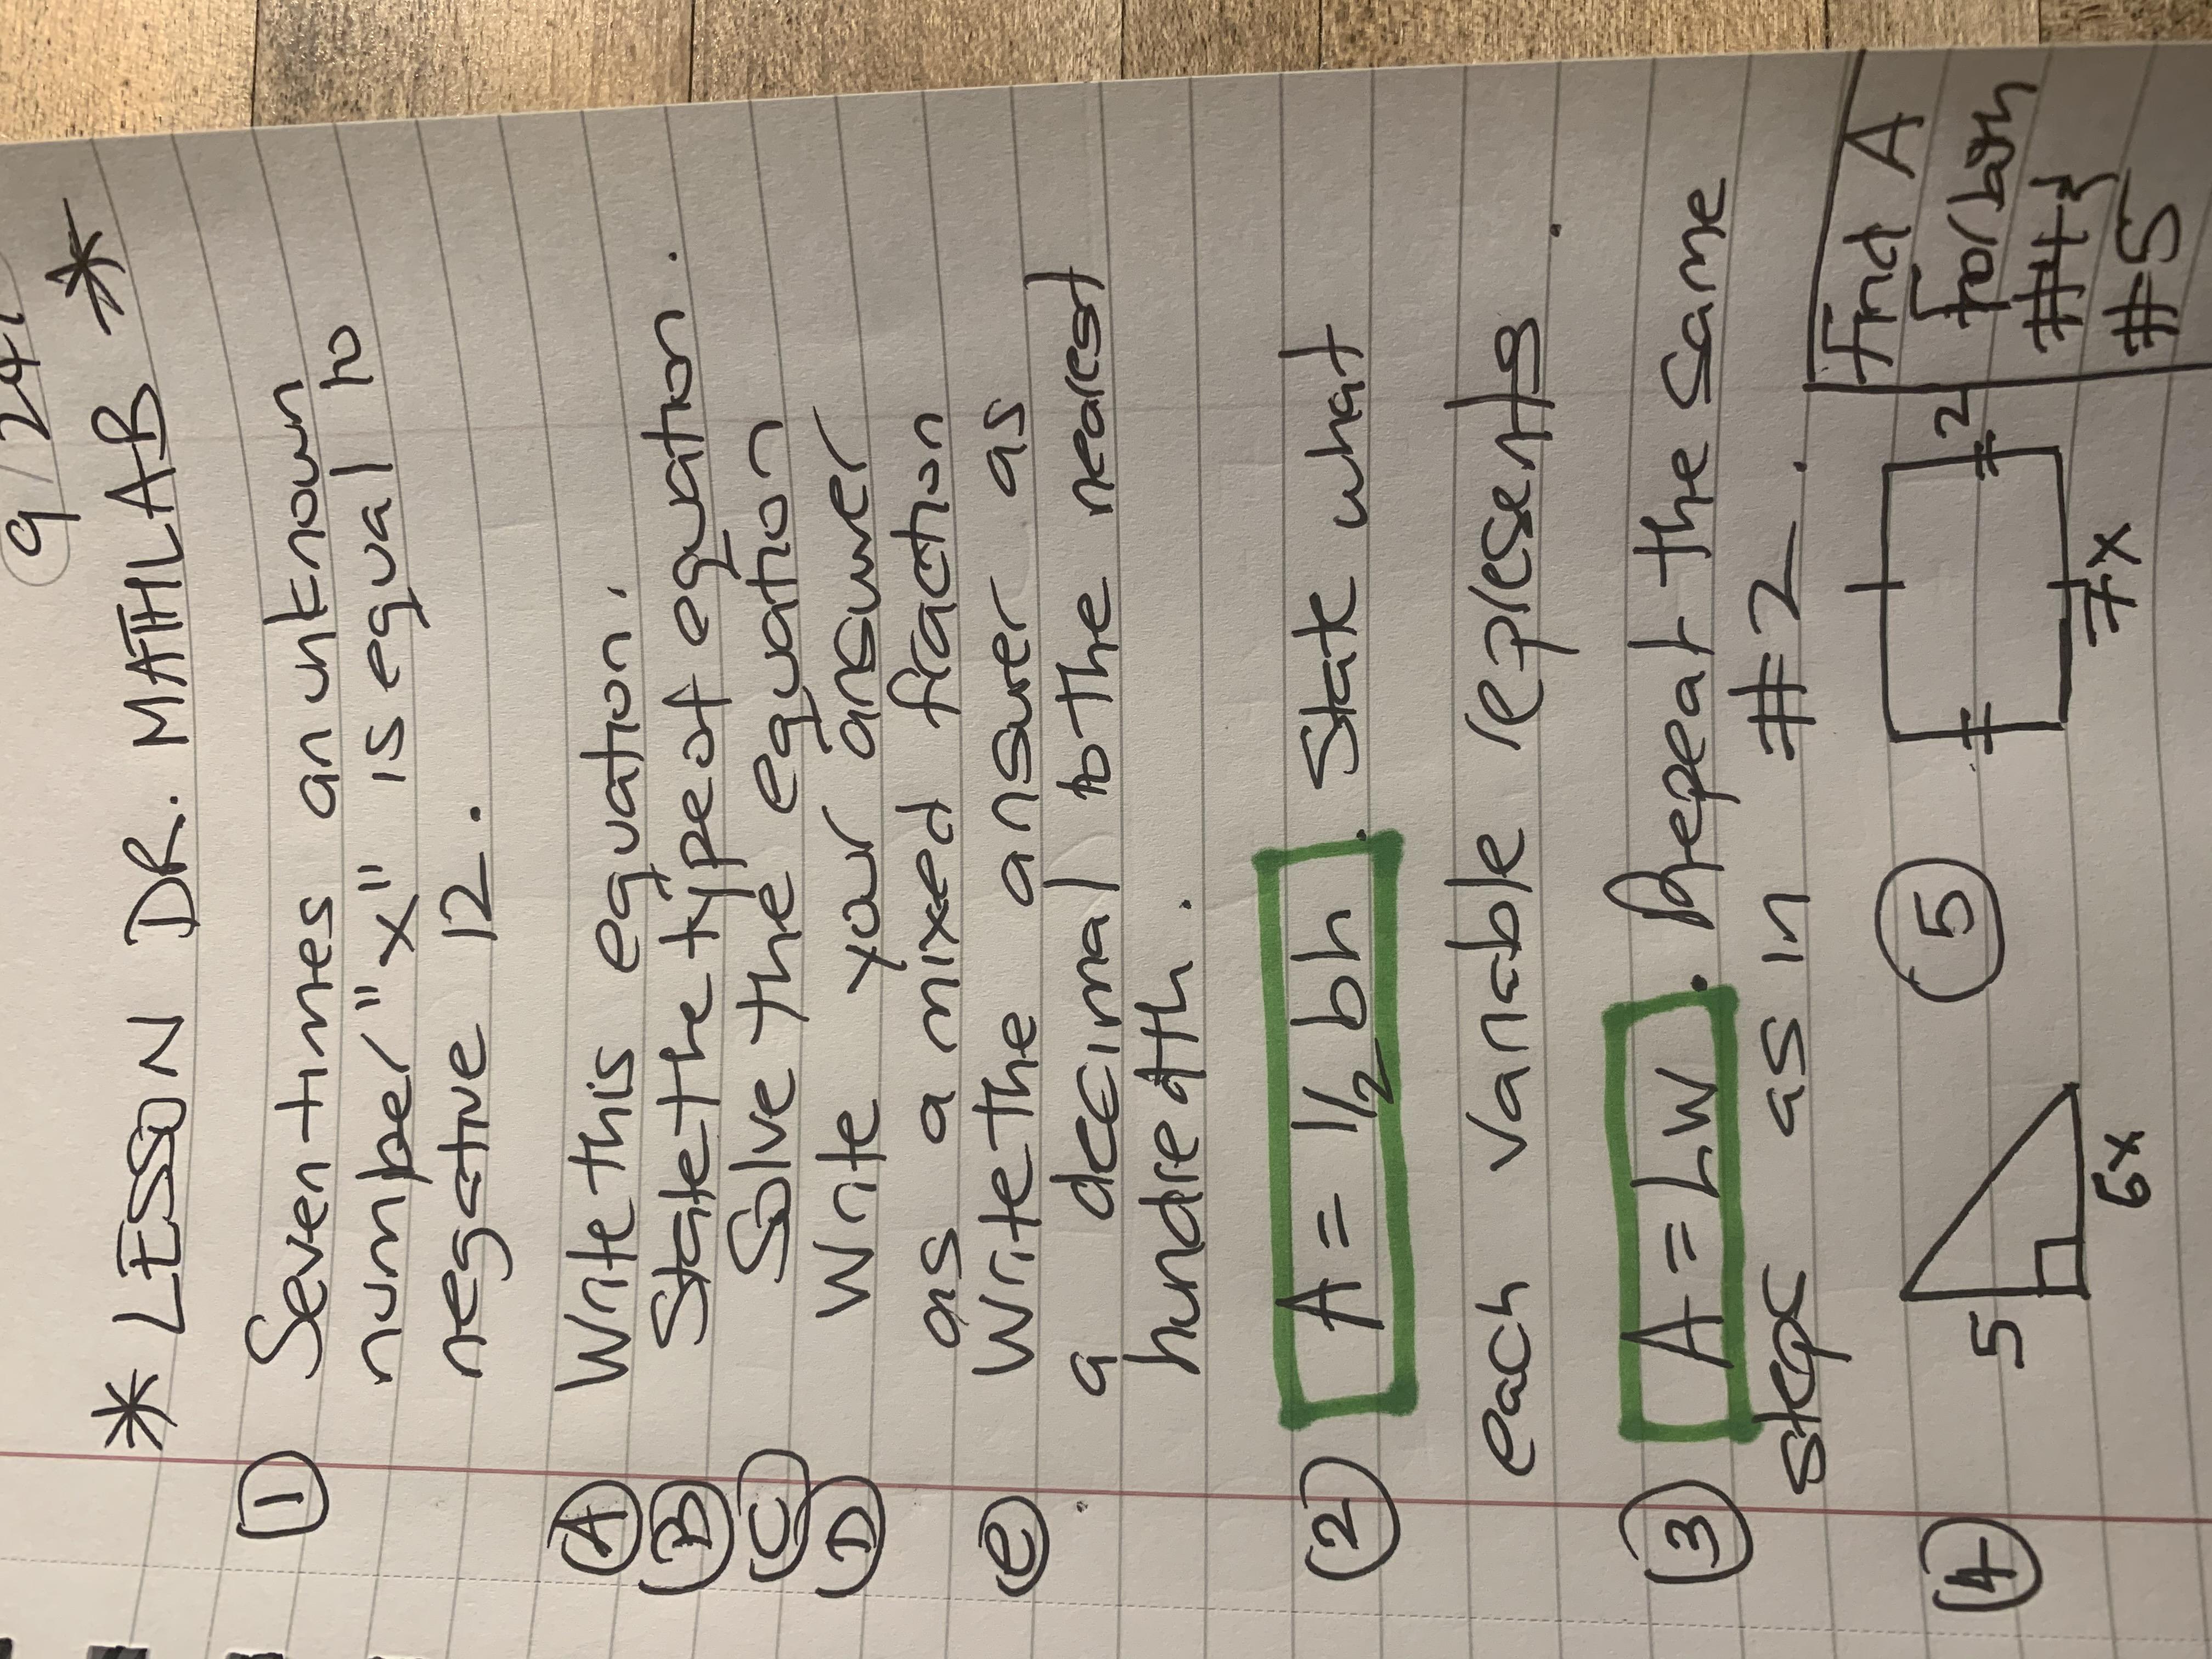 9/24/
* LESSON DR. MATHLAB *
1 Seven times an unknown
number "x" is equal to
negative 12.
A Write this equation.
B State the type of equation.
C Solve the equation
D Write your answer
as a mixed fraction
e Write the answer as
a decimal to the nearest
hundredth.
2 A = 1/2 bh . State what
each variable represents.
3 A = LW . Repeat the same
steps as in #2.
4 5 6x
5 2 7x
Find A
for both
#4 }
#5